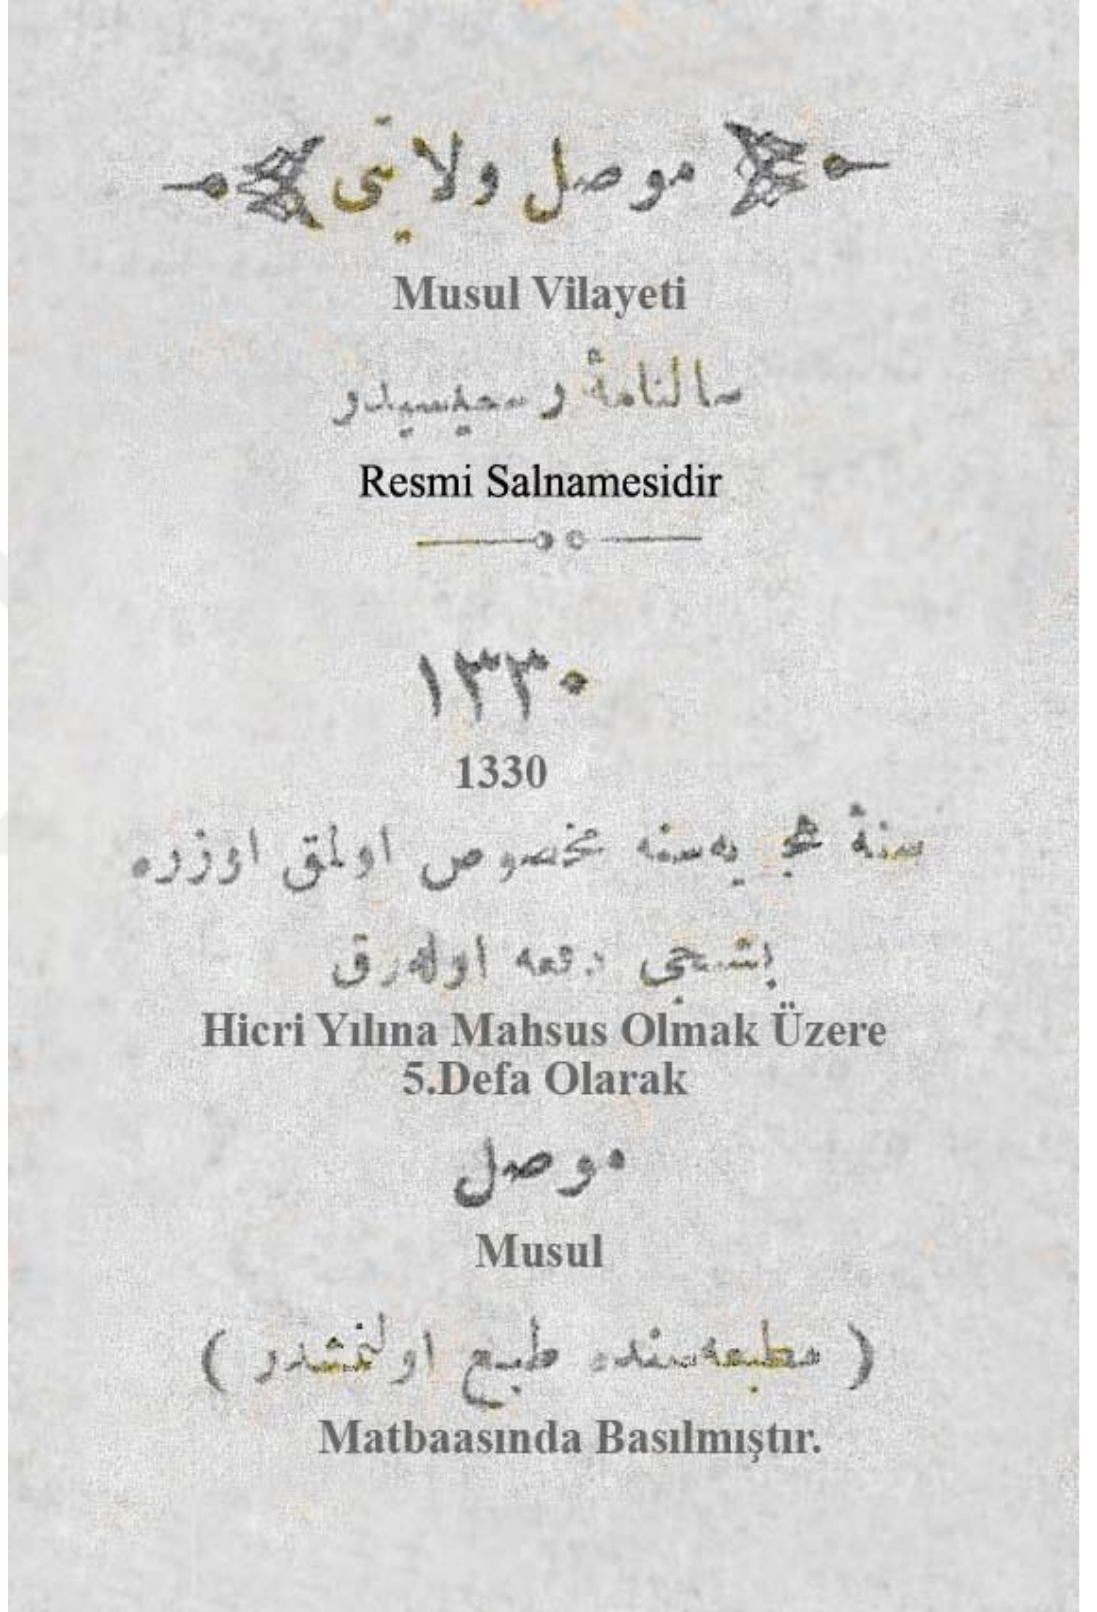 موصل ولایتی
Musul Vilayeti
سالنامهٔ رسمیسیدر
Resmi Salnamesidir
١٣٣٠
1330
سنهٔ هجریه‌سنه مخصوص اولمق اوزره
بشنجی دفعه اوله‌رق
Hicri Yılına Mahsus Olmak Üzere
5.Defa Olarak
موصل
Musul
( مطبعه‌سنده طبع اولنمشدر )
Matbaasında Basılmıştır.